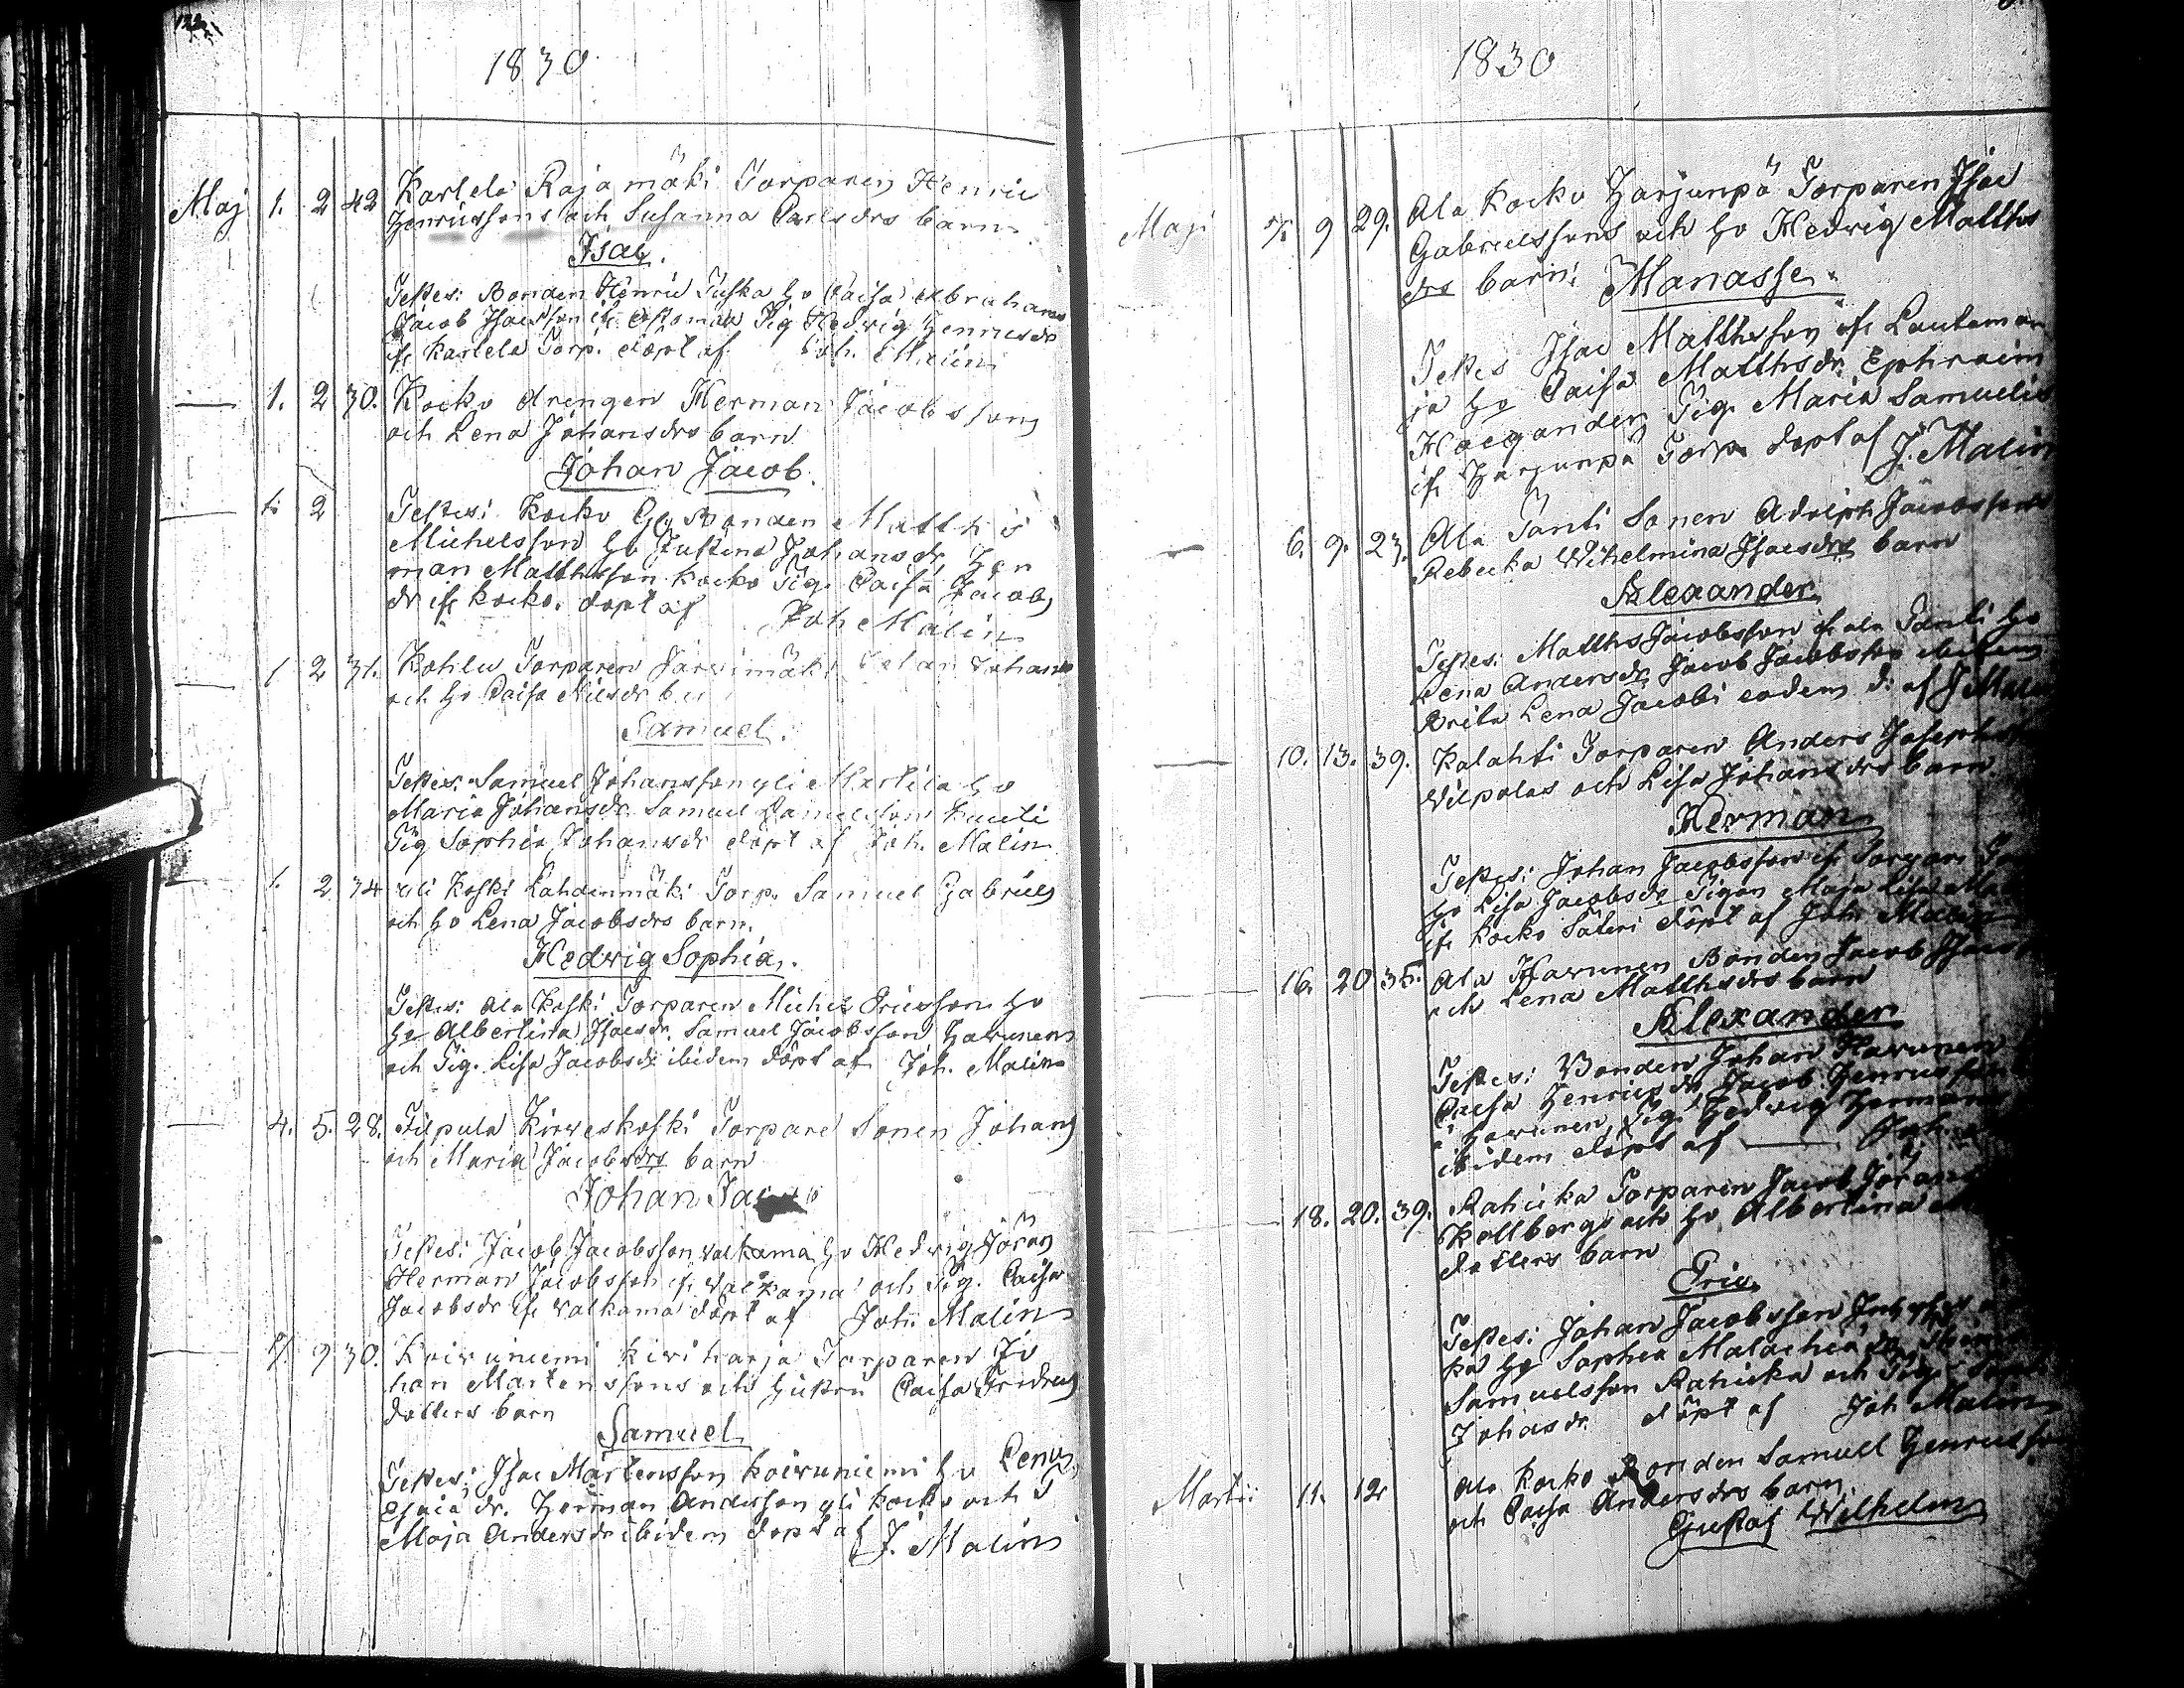 122
1830
Maj 1. 2 42 Karlela Rajamäki Torparen Henric
Henricssons och Susanna Carlsdrs barn
Isac.
Testes: Bonden Henric Tuska ho Caisa Abrahams
Jacob Isacsson Pig Hedvig Henricsdr
ifr Karlela Torp. döpt af Joh. Malin
1. 2 30. Kocko drengen Herman Jacobssons
och Lena Johansdrs barn
Johan Jacob.
1. 2 Testes: Kocko Bonden Matths
Michelsson ho Justina Johansdr Her
man Matthsson Kocko Pig. Caisa Jacobs
dr ifr Kocko. döpt af Joh Malin
1 2 31. Kohlu Torparen Järvimäki Johans
och ho Caisa Nilsdr
Samuel.
Testes: Samuel Johansson yli Martila ho
Maria Johansdr Samuel Samuelsson
Pig Sophia Johansdr döpt af Joh. Malin
1. 2 34 yli Koski Lahdenmäki Torp. Samuel Gabriels
och ho Lena Jacobsdrs barn.
Hedvig Sophia.
Testes: Ala Koski Torparen Michel Ericsson ho
ho Albertina Isacsdr. Samuel Jacobsson Havunen
och Pig. Lisa Jacobsdr ibidem döpt af Joh. Malin
4. 5. 28. Filpula Kirveskoski Torpare Sonen Johans
och Maria Jacobsdrs barn
Johan Jacob
Testes: Jacob Jacobsson Valkama ho Hedvig Jörans
Herman Jacobsson ifr Valkama och Pig. Caisa
Jacobsdr ifr Valkama döpt af Joh. Malin
7. 9 30. Koivuniemi Kiviharja Torparen Jo
han Mårtenssons och hustru Caisa Fredrics
dotters barn
Samuel
Testes: Isac Mårtensson Koivuniemi ho Lena
Esaiædr. Herman Andersson yli Kocko och P
Maja Andersdr ibidem döpt af J. Malin
1830
Maji 7. 9 29. Ala Kocko Harjunpä Torparen Isac
Gabrielssons och ho Hedvig Matths
drs barn: Manasse.
Testes Isac Matthsson ifr Lautama
ja ho Caisa Matthsdr. Ephraim
Hoegander, Pig. Maria Samuels
ifr Harjunpä Torp. döpt af J. Malin
6. 9. 23. Ala Panti Sonen Adolph Jacobssons
Rebecka Wilhelmina Isacsdrs barn
Alexander
Testes: Matths Jacobsson ifr ala Panti ho
Lena Andersdr Jacob Jacobsson ibidem
Brita Lena Jacobi eodem d: af J Malin
10. 13. 39. Kalahti Torparen Anders Josephs
Vilpolas och Lisa Johansdrs barn.
Herman
Testes: Johan Jacobsson ifr
ho Lisa Jacobsdr Pigan Maja Lisa
ifr Kocko Säteri döpt af Joh Malin
16. 20 35. Ala Havunen Bonden Jacob Isacs
och Lena Matthsdrs barn
Alexander
Testes: Bonden Johan Havunen
Caisa Henricsdr Jacob Henricsson
i Havunen, Pig. Hedvig Hermans
ibidem döpt af — Joh.
18. 20. 39. Rahicka Torparen Jacob Jörans
Kollbergs och ho Albertina
dotters barn
Eric
Testes: Johan Jacobsson
ka ho Sophia Malachiædr
Samuelsson Rahicka och Pig.
Johasdr. döpt af Joh Malin
Martii 11. 12 Ala Kocko Bonden Samuel Henricsson
och Caisa Andersdrs barn.
Gustaf Wilhelm